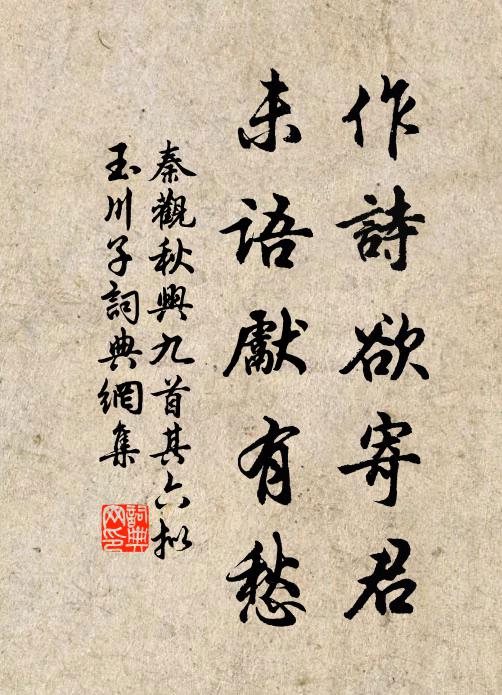 作詩欲寄君
未語獻有愁
秦觀秋興九首其六拟
玉川子詞典網集
詞典
网印